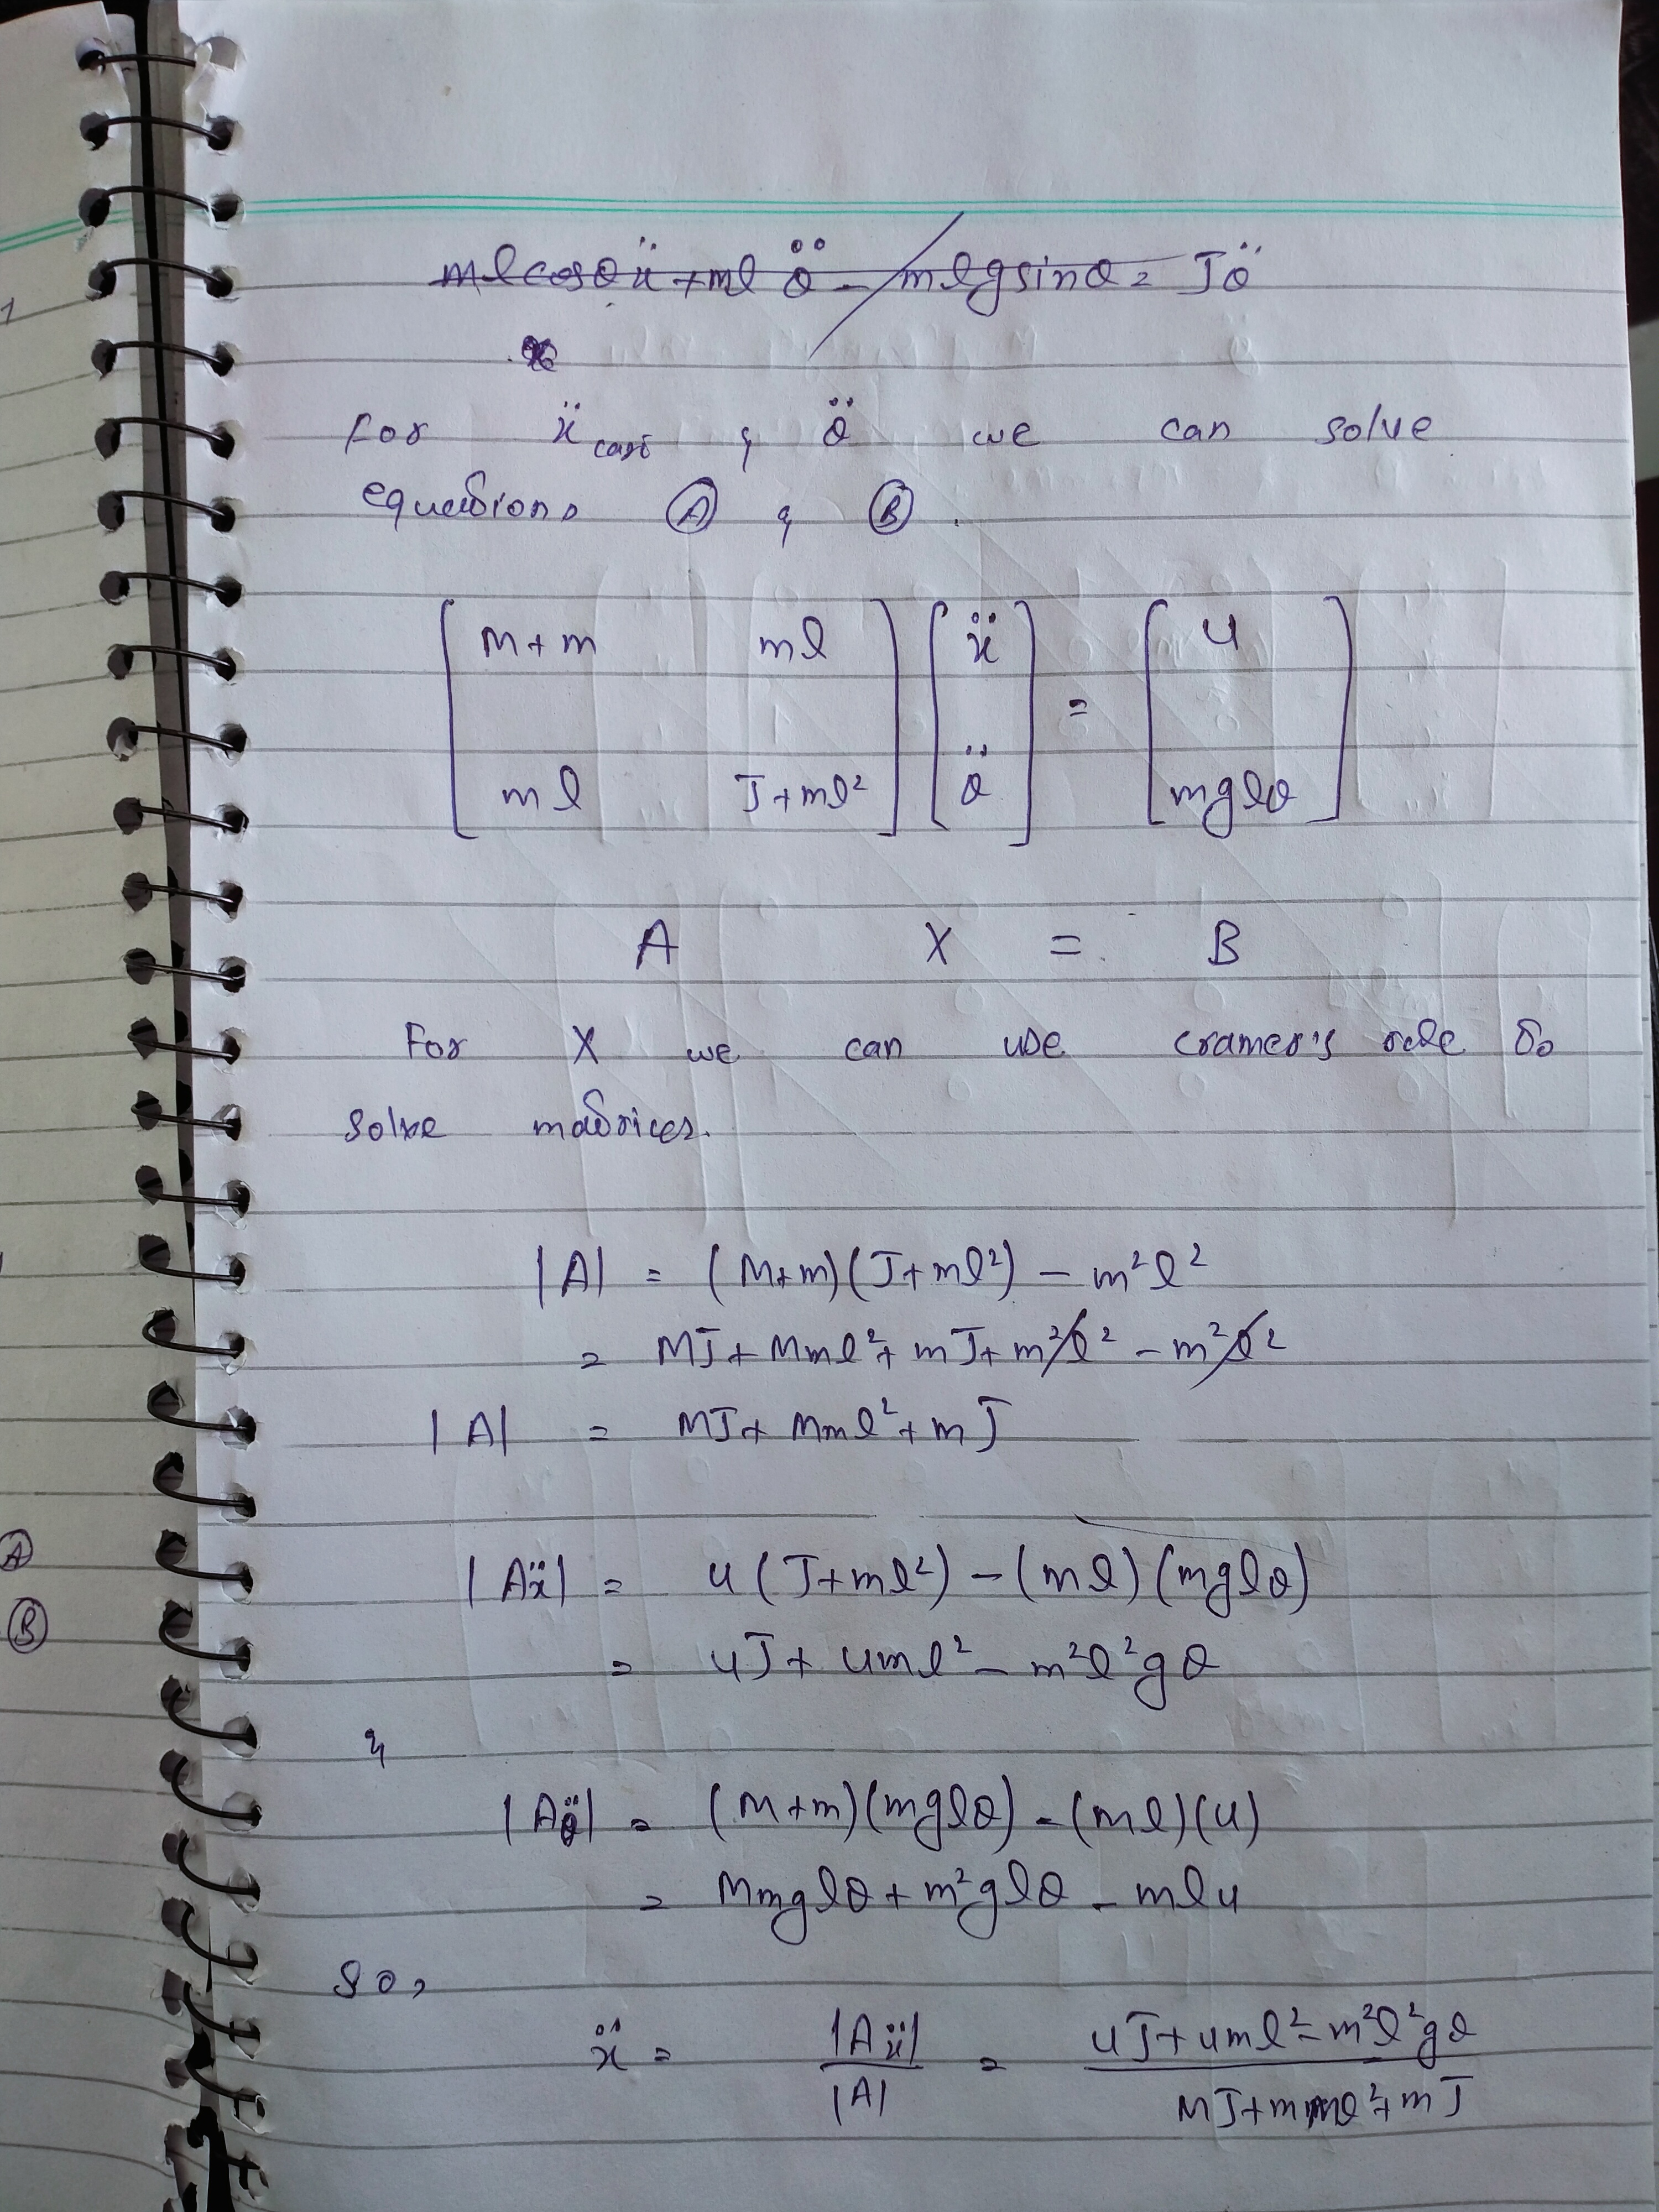 mlcosθẍ + mlθ̈ - mlgsinθ = Jθ̈
For ẍcart & θ̈ we can solve
equations Ⓐ & Ⓑ.
[M+m ml] [ẍ] = [u]
[ml J+ml²] [θ̈] [mglθ]
A X = B
For X we can use cramer's rule to
solve matrices.
|A| = (M+m)(J+ml²) - m²l²
= MJ + Mml² + mJ + m²l² - m²l²
|A| = MJ + Mml² + mJ
Ⓐ
|Aẍ| = u(J+ml²) - (ml)(mglθ)
Ⓑ
= uJ + uml² - m²l²gθ
&
|Aθ̈| = (M+m)(mglθ) - (ml)(u)
= Mmglθ + m²glθ - mlu
So,
ẍ = |Aẍ| / |A| = uJ + uml² - m²l²gθ / MJ + mml² + mJ